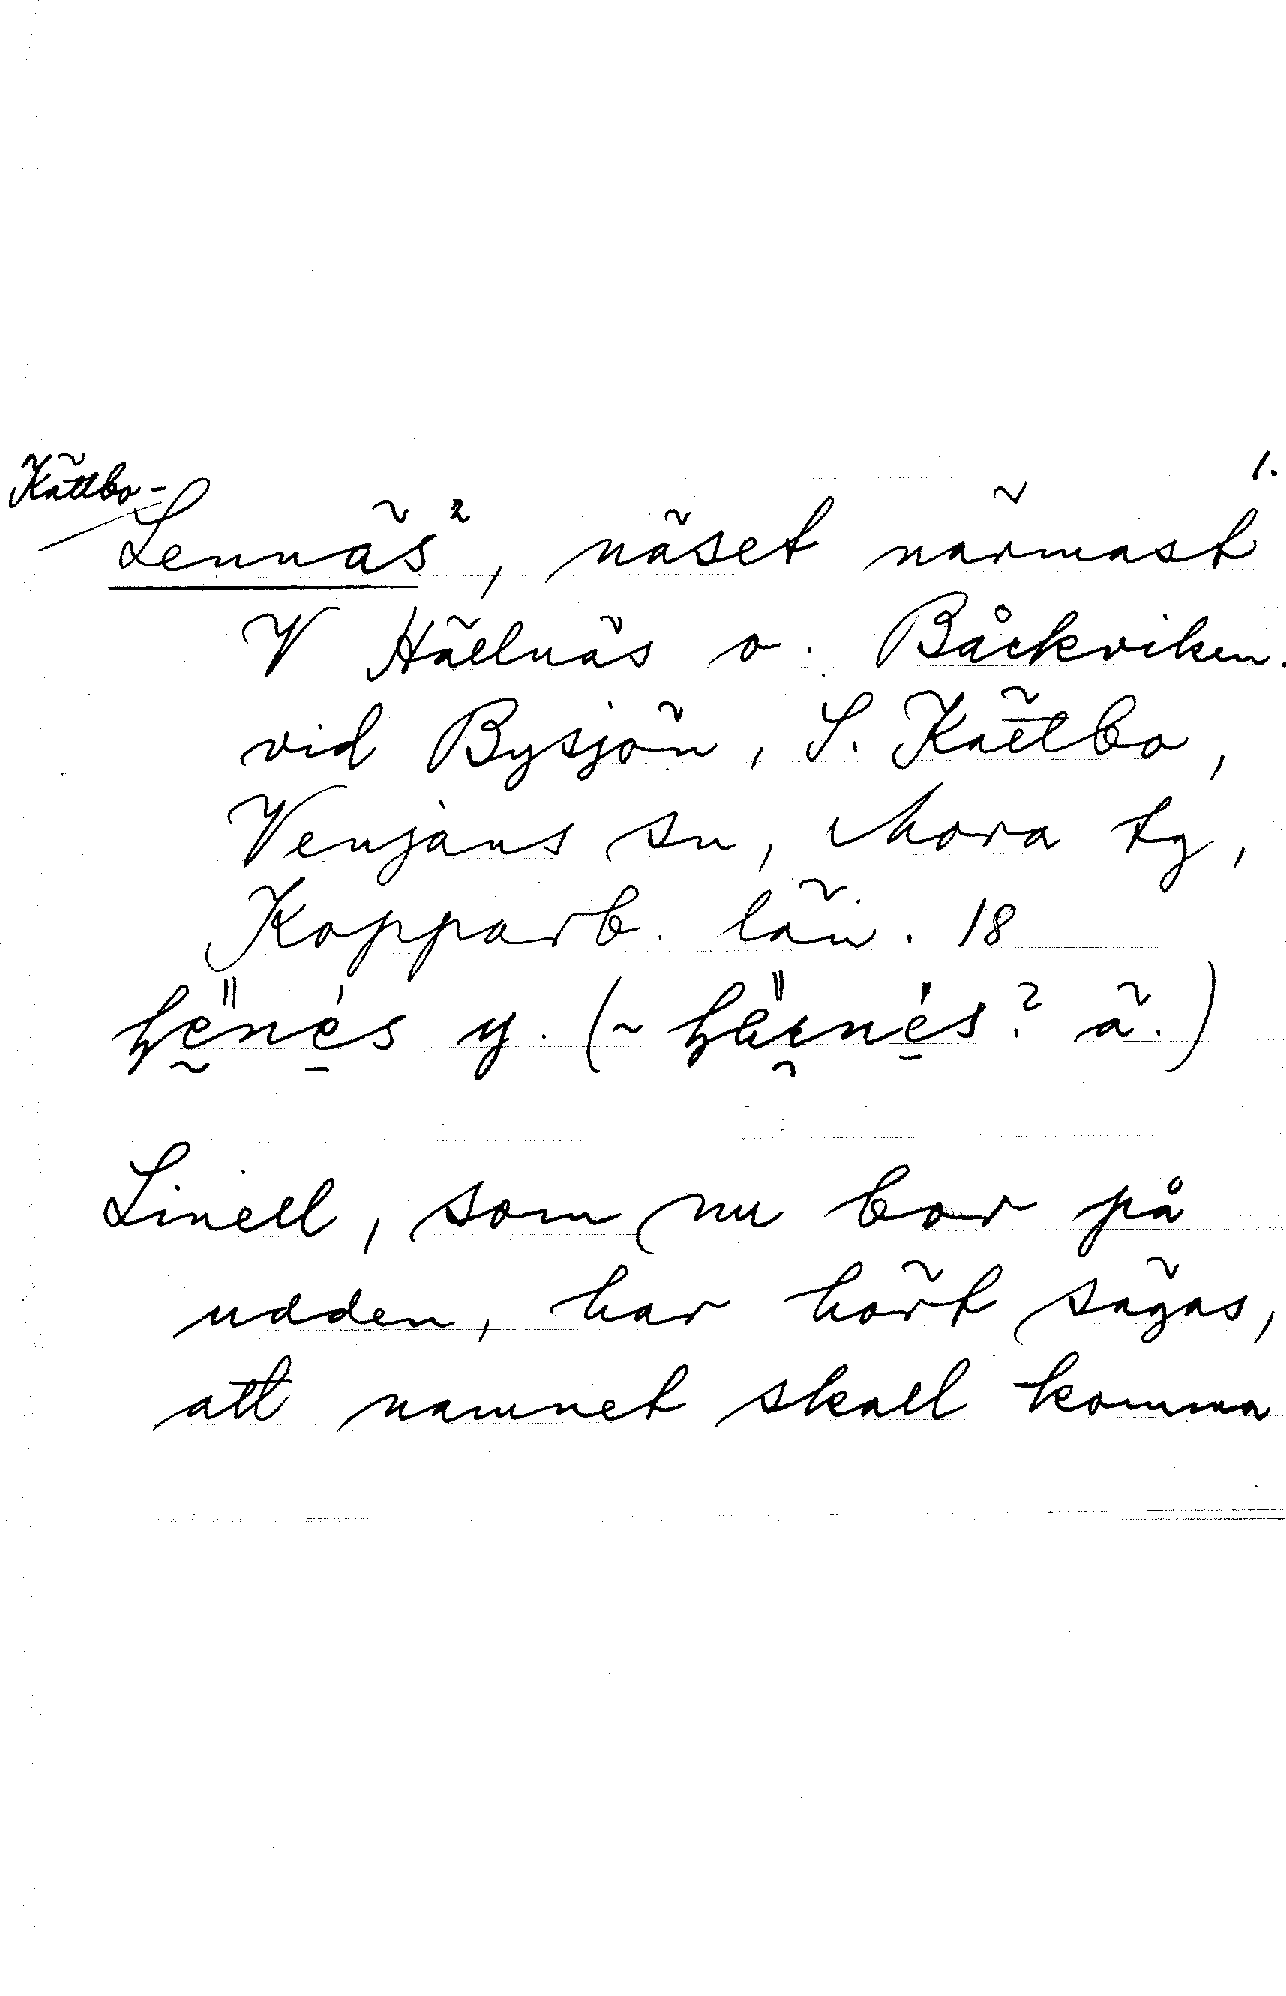 1.
Kättbo-
Lennäs², näset närmast
V Hällnäs o. Båckviken.
vid Bysjön, S. Kättbo,
Venjans sn, Mora tg,
Kopparb. län. 18
y. (~ ? ä.)
Linell, som nu bor på
udden, har hört sägas,
att namnet skall komma